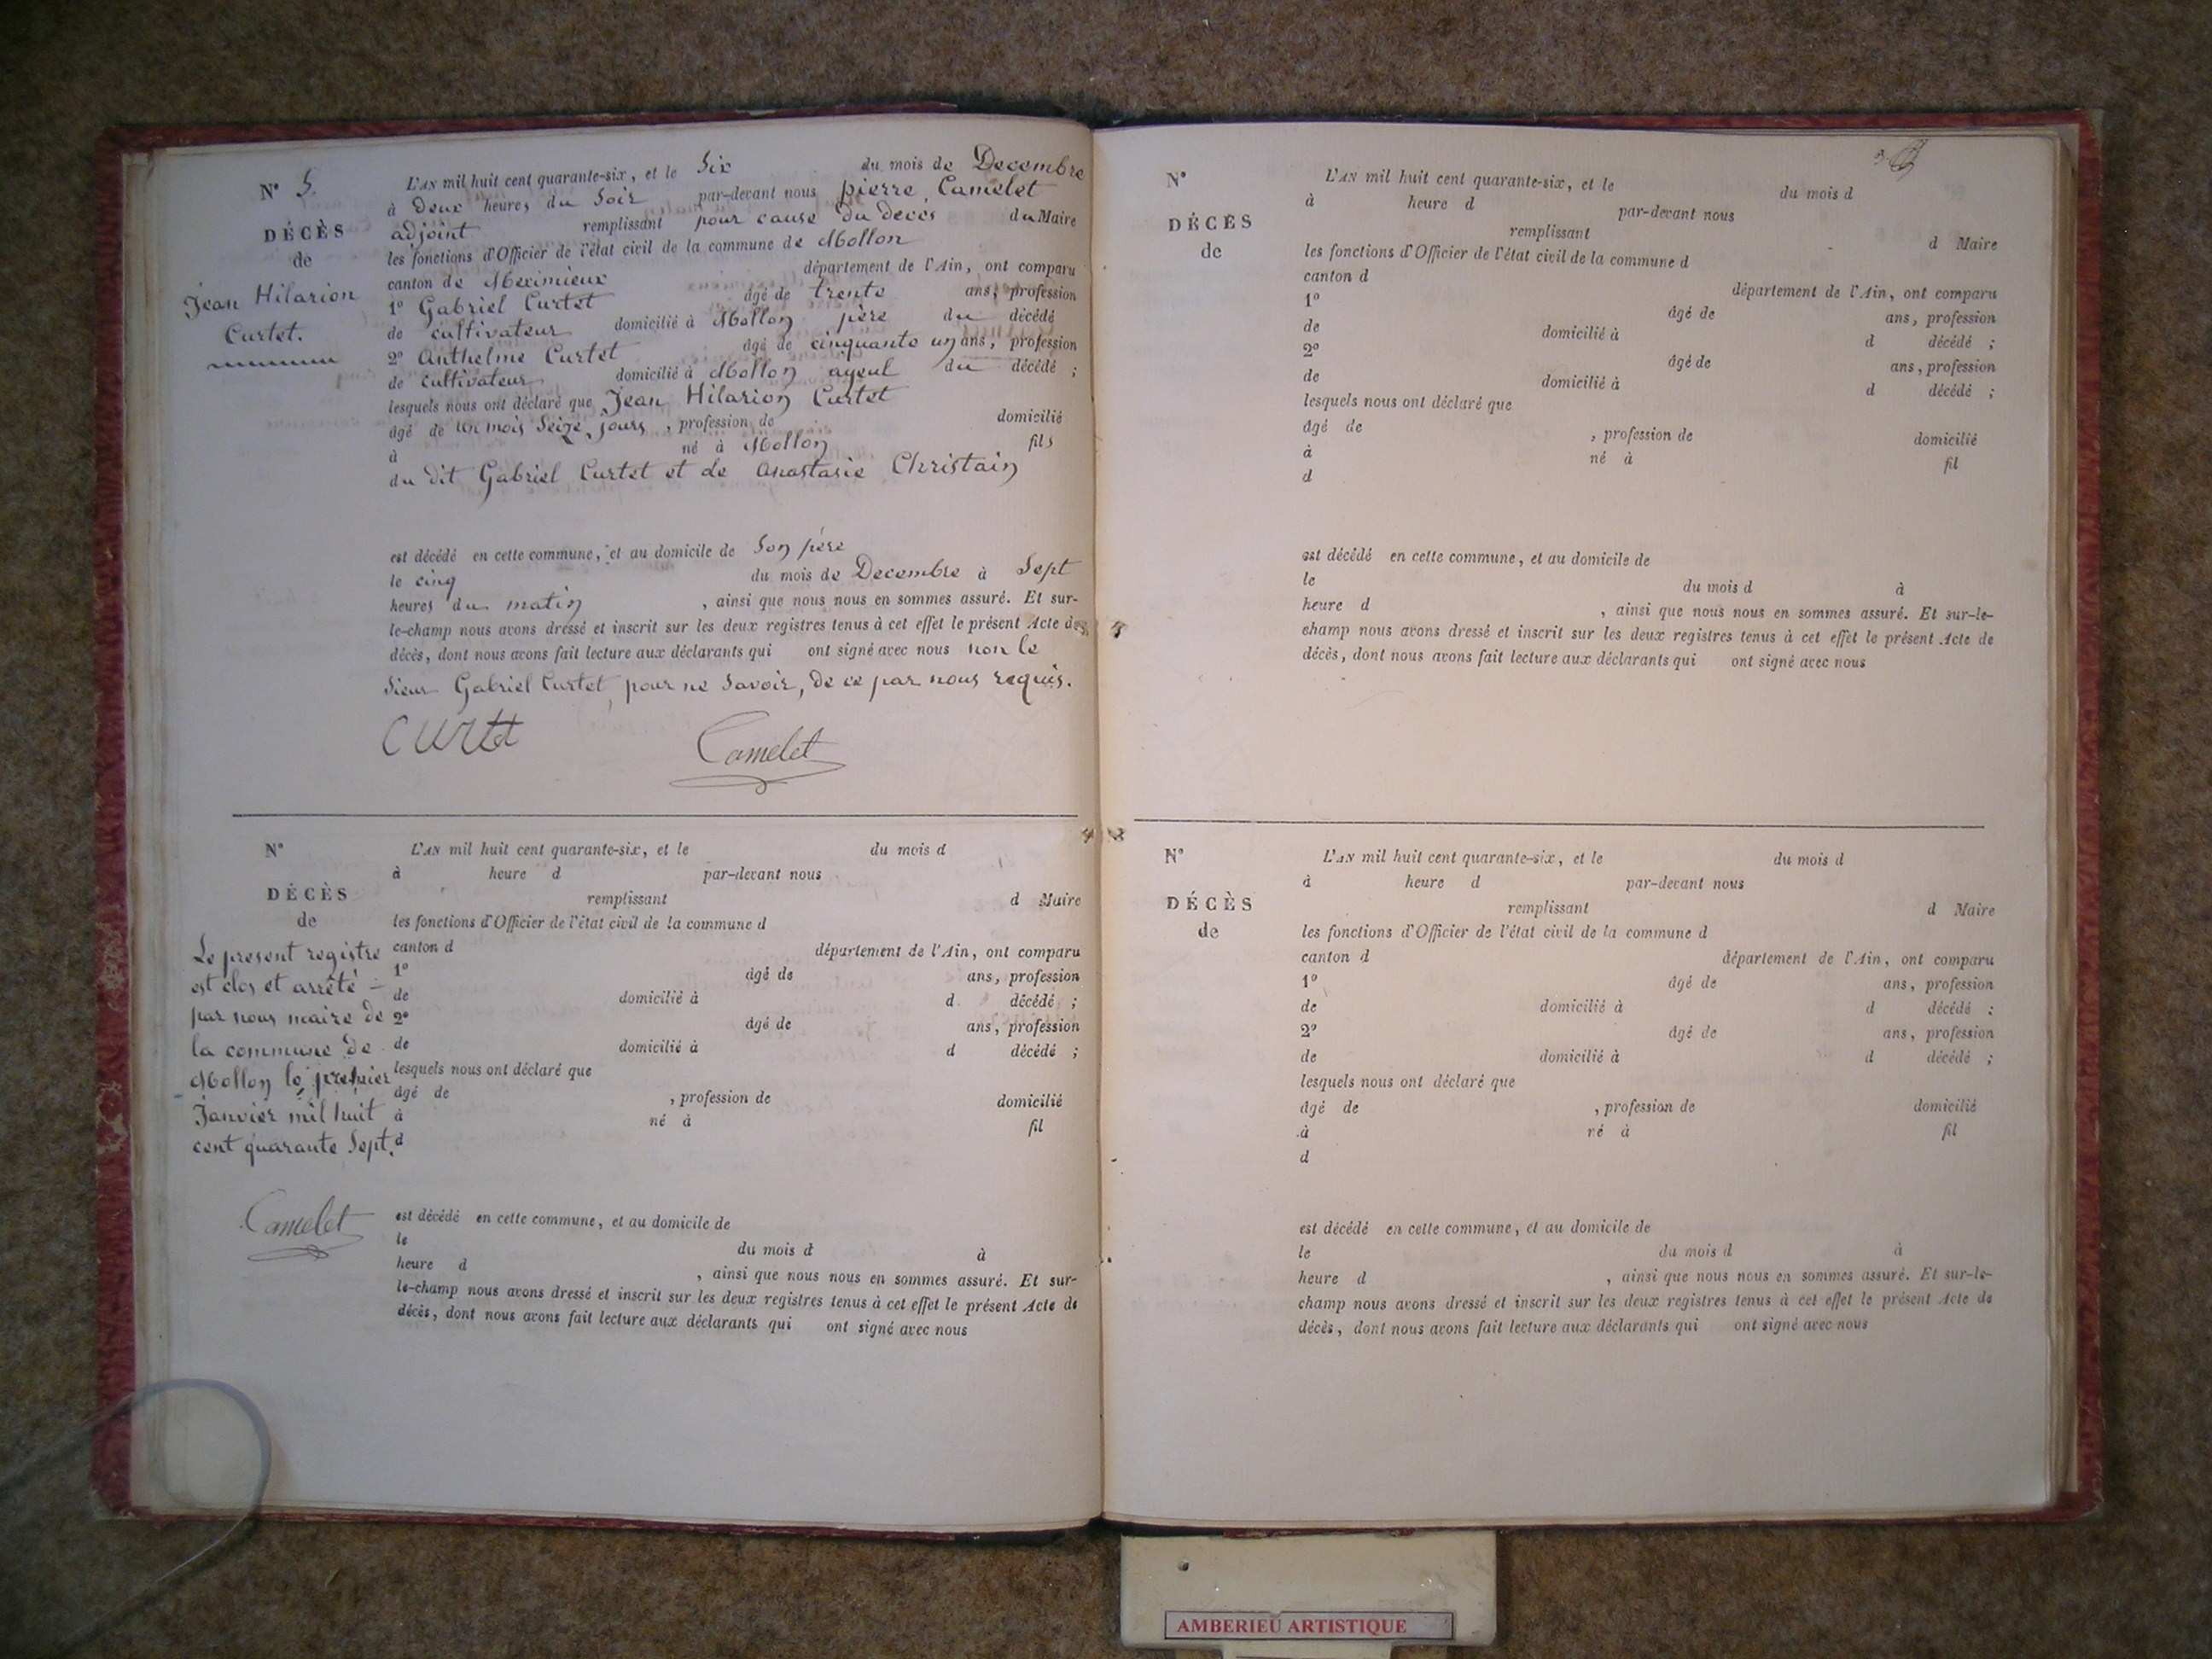 N° 5.
DÉCÈS
de
Jean Hilarion
Curtet.
L'AN mil huit cent quarante-six, et le Six du mois de Decembre
à Deux heures du Soir par-devant nous pierre Camelet
adjoint remplissant pour cause du deces du Maire
les fonctions d'Officier de l'état civil de la commune de Mollon
canton de Meximieux département de l'Ain, ont comparu
1° Gabriel Curtet âgé de trente ans, profession
de cultivateur domicilié à Mollon père du décédé
2° Anthelme Curtet âgé de cinquante un ans, profession
de cultivateur domicilié à Mollon ayeul du décédé ;
lesquels nous ont déclaré que Jean Hilarion Curtet
âgé de un mois Seize jours, profession de domicilié
à né à Mollon fils
du dit Gabriel Curtet et de Anastasie Christain
est décédé en cette commune, et au domicile de Son père
le cinq du mois de Decembre à Sept
heures du matin, ainsi que nous nous en sommes assuré. Et sur-
le-champ nous avons dressé et inscrit sur les deux registres tenus à cet effet le présent Acte de
décès, dont nous avons fait lecture aux déclarants qui ont signé avec nous non le
Sieur Gabriel Curtet pour ne Savoir, de ce par nous requis.
Curtet Camelet
N°
DÉCÈS
de
Le present registre
est clos et arrêté
par nous maire de
la commune de
Mollon le premier
Janvier mil huit
cent quarante Sept.
Camelet
L'AN mil huit cent quarante-six, et le du mois d
à heure d par-devant nous
remplissant d Maire
les fonctions d'Officier de l'état civil de la commune d
canton d département de l'Ain, ont comparu
1° âgé de ans, profession
de domicilié à d décédé ;
2° âgé de ans, profession
de domicilié à d décédé ;
lesquels nous ont déclaré que
âgé de , profession de domicilié
à né à fil
d
est décédé en cette commune, et au domicile de
le du mois d à
heure d , ainsi que nous nous en sommes assuré. Et sur-
le-champ nous avons dressé et inscrit sur les deux registres tenus à cet effet le présent Acte de
décès, dont nous avons fait lecture aux déclarants qui ont signé avec nous
N°
DÉCÈS
de
L'AN mil huit cent quarante-six, et le du mois d
à heure d par-devant nous
remplissant d Maire
les fonctions d'Officier de l'état civil de la commune d
canton d département de l'Ain, ont comparu
1° âgé de ans, profession
de domicilié à d décédé ;
2° âgé de ans, profession
de domicilié à d décédé ;
lesquels nous ont déclaré que
âgé de , profession de domicilié
à né à fil
d
est décédé en cette commune, et au domicile de
le du mois d à
heure d , ainsi que nous nous en sommes assuré. Et sur-le-
champ nous avons dressé et inscrit sur les deux registres tenus à cet effet le présent Acte de
décès, dont nous avons fait lecture aux déclarants qui ont signé avec nous
N°
DÉCÈS
de
L'AN mil huit cent quarante-six, et le du mois d
à heure d par-devant nous
remplissant d Maire
les fonctions d'Officier de l'état civil de la commune d
canton d département de l'Ain, ont comparu
1° âgé de ans, profession
de domicilié à d décédé ;
2° âgé de ans, profession
de domicilié à d décédé ;
lesquels nous ont déclaré que
âgé de , profession de domicilié
à né à fil
d
est décédé en cette commune, et au domicile de
le du mois d à
heure d , ainsi que nous nous en sommes assuré. Et sur-le-
champ nous avons dressé et inscrit sur les deux registres tenus à cet effet le présent Acte de
décès, dont nous avons fait lecture aux déclarants qui ont signé avec nous
AMBERIEU ARTISTIQUE